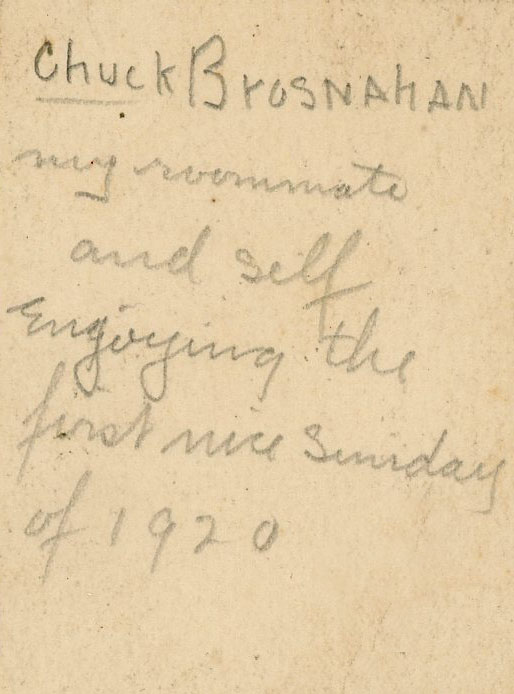 Chuck Brosnahan
my roommate
and self
Enjoying the
first nice Sunday
of 1920